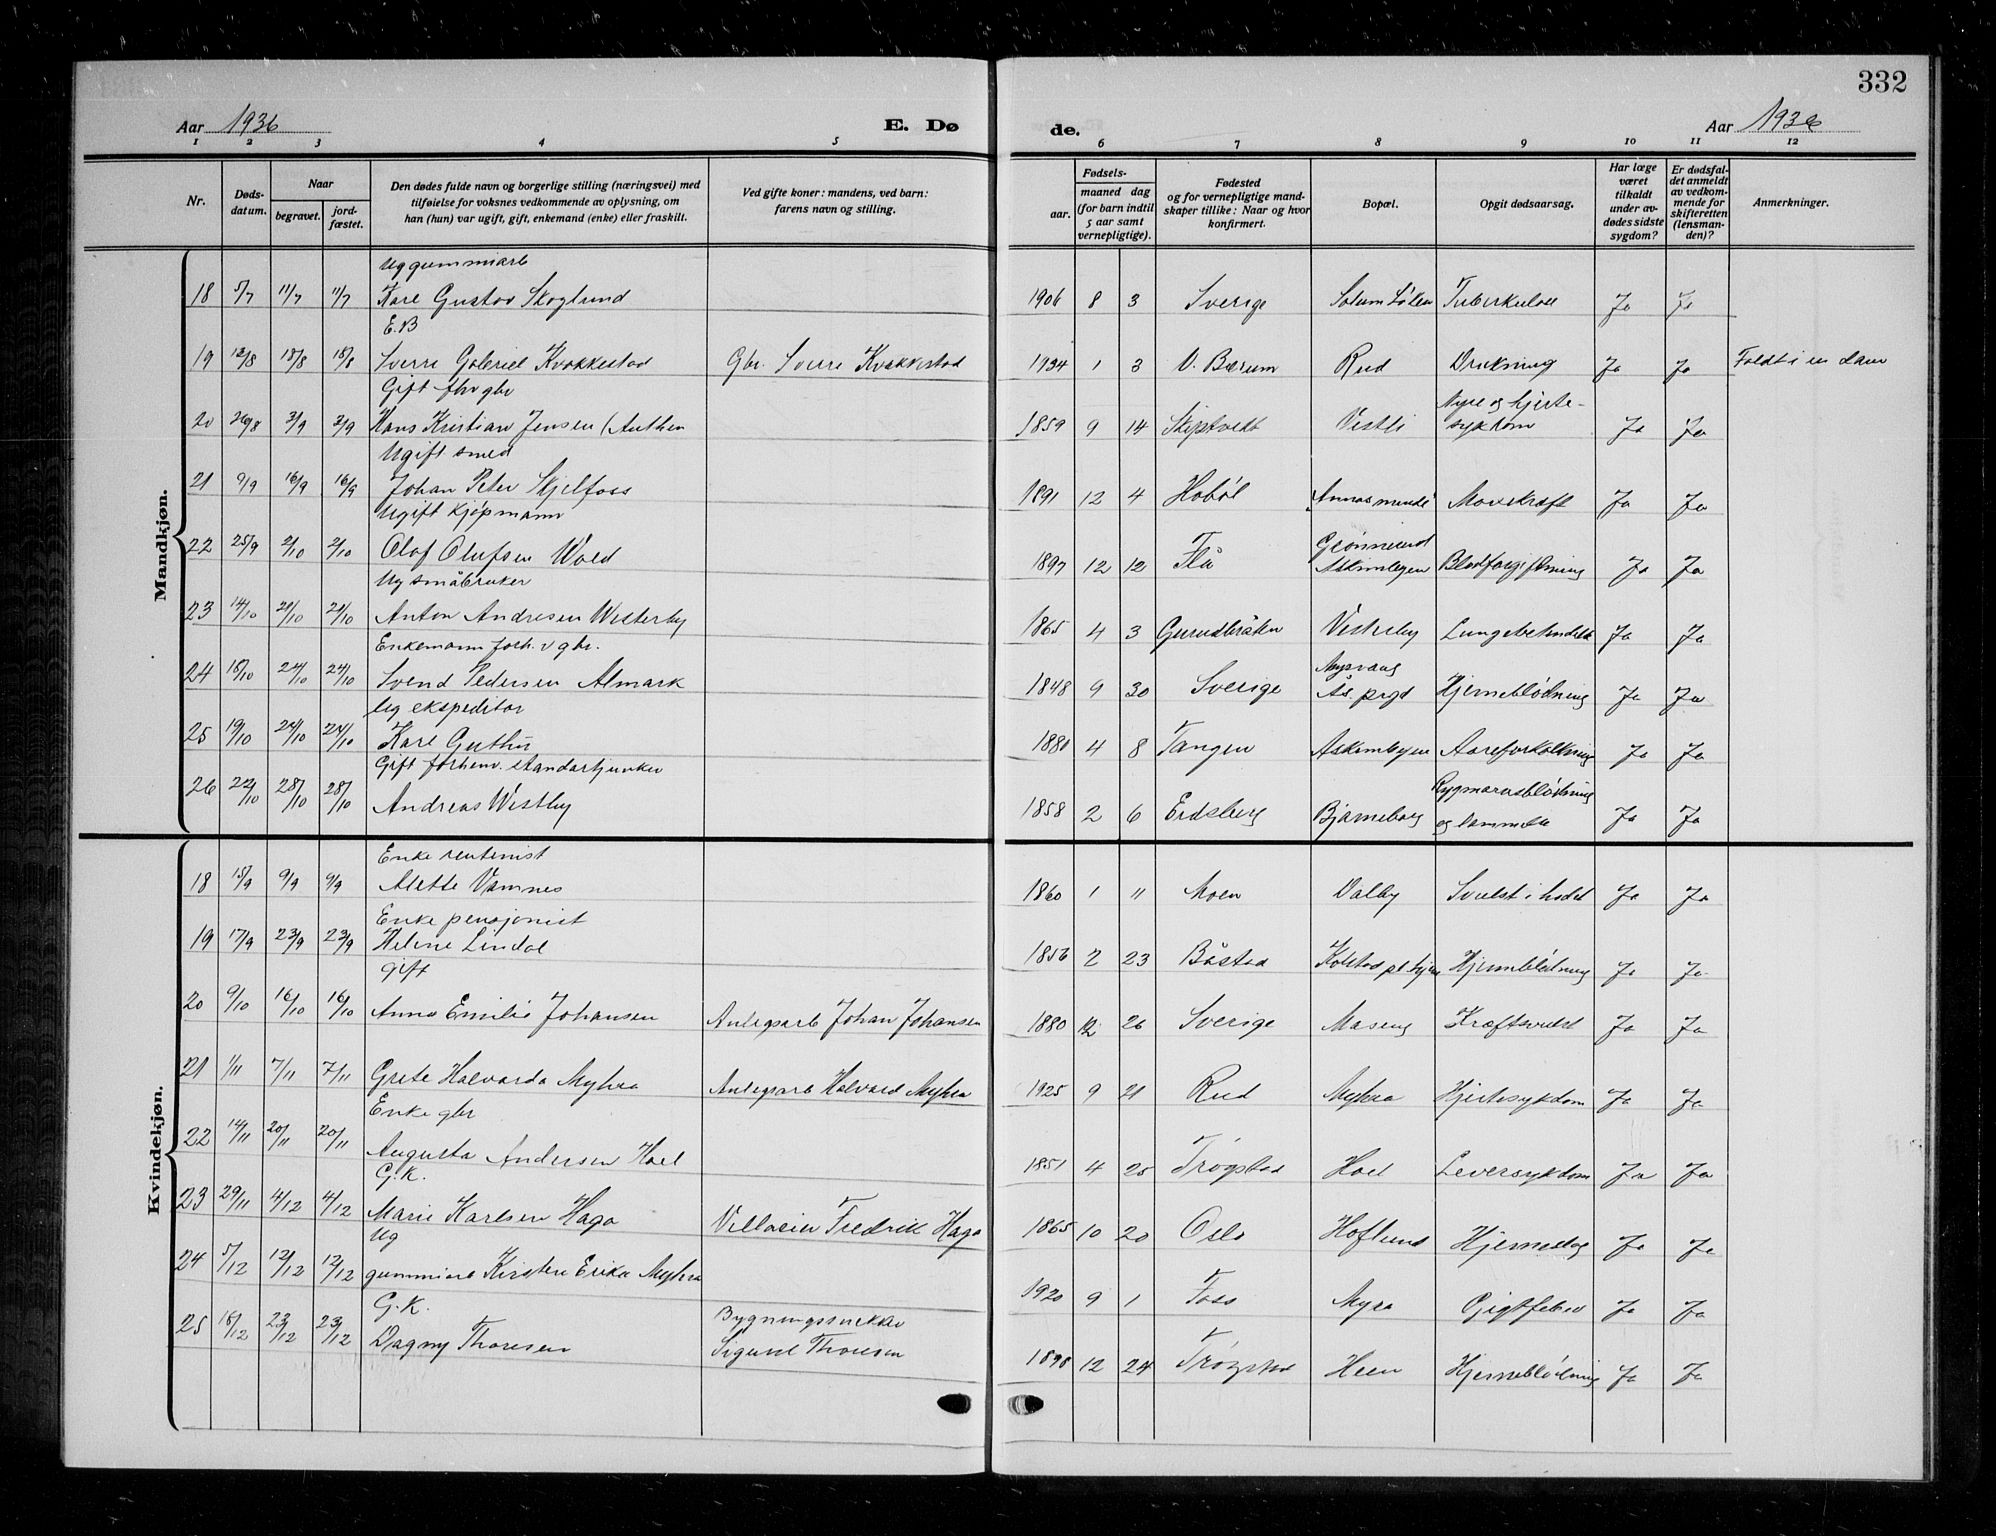 332
Aar 1936 E. Dø de. Aar 1936
1 2 3 4 5 6 7 8 9 10 11 12
Nr. Dødsdatum. Naar begravet. jordfæstet. Den dødes fulde navn og borgerlige stilling (næringsvei) med tilføielse for voksnes vedkommende av oplysning, om han (hun) var ugift, gift, enkemand (enke) eller fraskilt. Ved gifte koner: mandens, ved barn: farens navn og stilling. Fødsels- aar. maaned dag (for barn indtil 5 aar samt vernepligtige). Fødested og for vernepligtige mandskaper tillike: Naar og hvor konfirmert. Bopæl. Opgit dødsaarsag. Har læge været tilkaldt under avdødes sidste sygdom? Er dødsfaldet anmeldt av vedkommende for skifteretten (lensmanden)? Anmerkninger.
Mandkjøn.
Ug gummiarb
18 5/7 11/7 11/7 Karl Gustav Skoglund 1906 8 3 Sverige Solum Tuberkulose Ja Ja
E.B
19 12/8 18/8 18/8 Sverre Gabriel Kvakkestad Gbr. Sverre Kvakkestad 1934 1 3 V. Bærum Rud Drukning Ja Ja Faldt i en dam
Gift fhv gbr
20 26/8 3/9 3/9 Hans Kristian Jensen (Authen 1859 9 14 Skiptvedt Vestli Nyre og hjerte-
sykdom Ja Ja
Ugift smed
21 9/9 16/9 16/9 Johan Peter Skjelfoss 1891 12 4 Hobøl Mavekræft Ja Ja
Ugift kjøpmann
22 25/9 2/10 2/10 Olaf Olufsen Wold 1897 12 12 Flå Grønnlund
Askimbyen Blodforgiftning Ja Ja
Ug småbruker
23 14/10 21/10 21/10 Anton Andresen Westerby 1865 4 3 Vesterby Ja Ja
Enkemann forh. v gbr.
24 18/10 24/10 24/10 Svend Pedersen Almark 1848 9 30 Sverige Ås. prgd Hjerneblødning Ja Ja
Ug ekspeditør
25 19/10 24/10 24/10 Karl Guthu 1880 4 8 Tangen Askimbyen Aareforkalkning Ja Ja
Gift forhenv. standartjunker
26 22/10 28/10 28/10 Andreas Westby 1858 2 6 Eidsberg Bjørneborg Rygmarvsblødning
og lammelse Ja Ja
Kvindekjøn.
Enke rentenist
18 15/9 9/9 9/9 Alette Vamnes 1860 1 11 Moen Dalby Svulst i hodet Ja Ja
Enke pensjonist
19 17/9 23/9 23/9 Helene Lindal 1856 2 23 Båstad Hjerneblødning Ja Ja
gift
20 9/10 16/10 16/10 Anna Emilie Johansen Anlegsarb Johan Johansen 1880 12 26 Sverige Maseng Kræftsvulst Ja Ja
21 1/11 7/11 7/11 Grete Halvarda Myhra Anlegsarb Halvard Myhra 1925 9 21 Rud Myhra Hjertesykdom Ja Ja
Enke gbr
22 14/11 20/11 20/11 Augusta Andersen Hoel 1851 4 25 Trøgstad Hoel Leversykdom Ja Ja
G.K.
23 29/11 4/12 4/12 Marie Karlsen Haga Villaeier Fredrik Haga 1865 10 20 Oslo Hoflund Hjerneslag Ja Ja
Ug
24 5/12 12/12 12/12 gummiarb Kirsten Erika Myhra 1920 9 1 Foss Myra Gigtfeber Ja Ja
G.K.
25 18/12 23/12 23/12 Dagny Thoresen Bygningssnekker
Sigurd Thoresen 1898 12 24 Trøgstad Heen Hjerneblødning Ja Ja